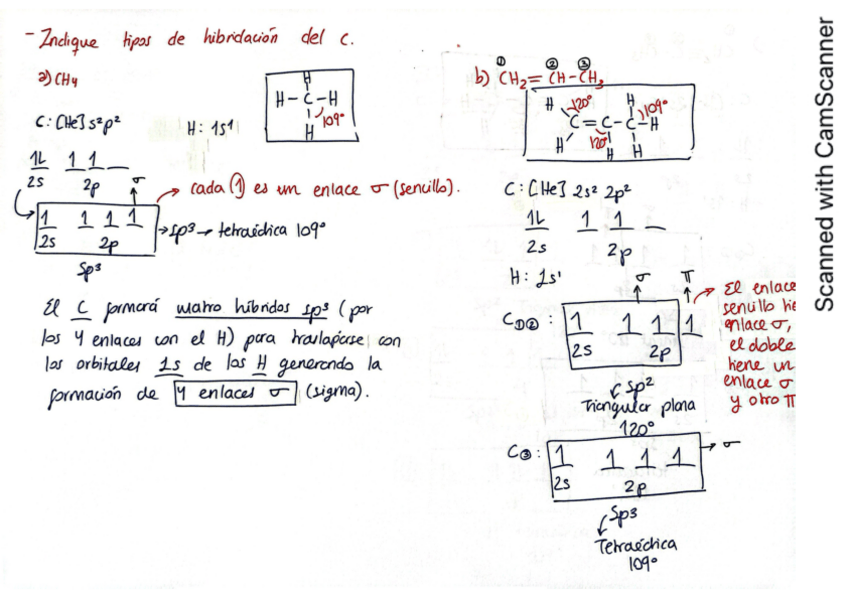 - Indique tipos de hibridación del C.
a) CH4
H
H-C-H
H
109°
C: [He] s² p²
H: 1s¹
1L 1 1 __
2s 2p
σ
→ cada (1) es un enlace σ (sencillo).
1 1 1 1
2s 2p
→ sp³ → tetraédica 109°
Sp³
El C formará cuatro híbridos sp³ (por
los 4 enlaces con el H) para traslaparse con
los orbitales 1s de los H generando la
formación de 4 enlaces σ (sigma).
① ② ③
b) CH2=CH-CH3
H H
120° 109°
C=C-C-H
120°
H H H
C: [He] 2s² 2p²
1L 1 1 __
2s 2p
H: 1s¹
σ π
C①②: 1 1 1 1
2s 2p
Sp²
Triangular plana
120°
→ El enlace
sencillo tie
enlace σ,
el doble
tiene un
enlace σ
y otro π
C③: 1 1 1 1 → σ
2s 2p
Sp3
Tetraédica
109°
Scanned with CamScanner